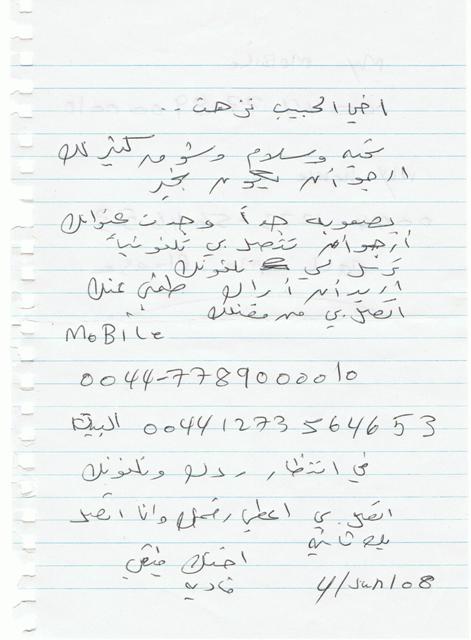 اخي الحبيب نزهت ..
تحية وسلام وشوق كثير لك
ارجو أن تكون بخير
بصعوبة جداً وجدت عنوانك
أرجو أن تتصل بي تلفونياً
ترسل لي تلفونك
اريد أن أراك طمني عنك
اتصل بي من فضلك
MoBile
0044-7789000010
البيت 00441273564653
في انتظار ردك وتلفونك
اتصل بي اعطي رقمك وانا اتصل
بك ثانية
اختك
فادية 4/Jun/08